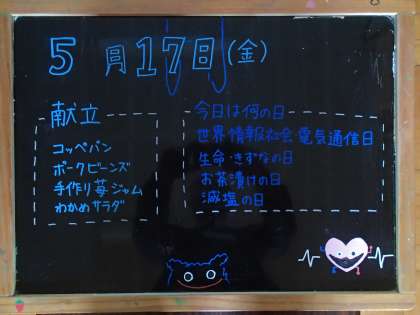 5月17日(金)
献立
コッペパン
ポークビーンズ
手作り苺ジャム
わかめサラダ
今日は何の日
世界情報社会・電気通信日
生命・きずなの日
お茶漬けの日
減塩の日